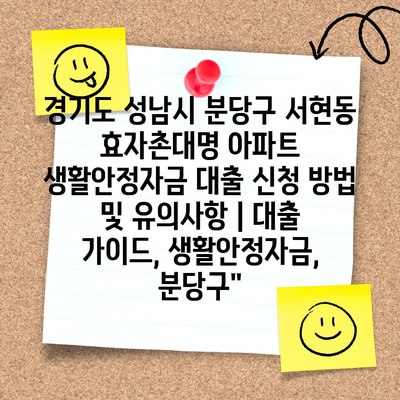 경기도 성남시 분당구 서현동
효자촌대명 아파트
생활안정자금 대출 신청 방법
및 유의사항 | 대출
가이드, 생활안정자금,
분당구"